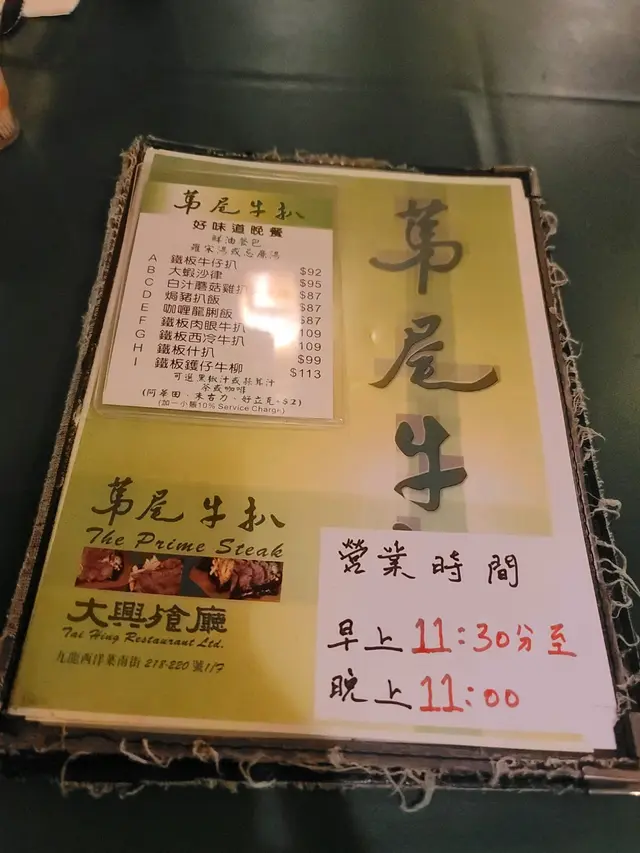 第尾牛扒
好味道晚餐
鮮油餐包
羅宋湯或忌廉湯
A 鐵板牛仔扒 $92
B 大蝦沙律 $95
C 白汁蘑菇雞扒 $87
D 焗豬扒飯 $87
E 咖喱龍脷飯 $87
F 鐵板肉眼牛扒 109
G 鐵板西冷牛扒 109
H 鐵板什扒 $99
I 鐵板鑊仔牛柳 $113
可選黑椒汁或蒜茸汁
茶或咖啡
(阿華田、朱古力、好立克-$2)
(加一小賬10% Service Charge)
第尾牛
第尾牛扒
The Prime Steak
大興餐廳
Tai Hing Restaurant Ltd.
九龍西洋菜南街 218-220 號1/F
營業時間
早上11:30分至
晚上11:00